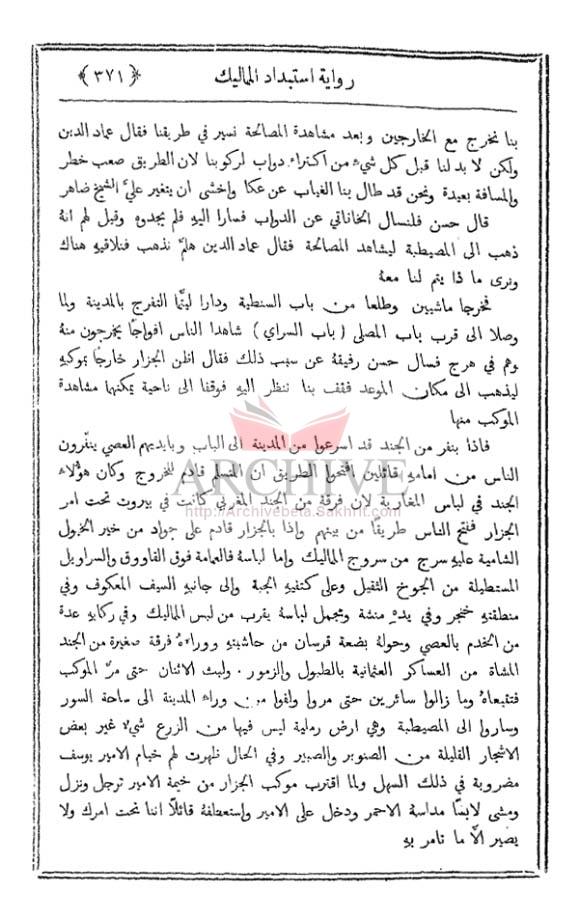 رواية استبداد المماليك ﴿٣٧١﴾
بنا نخرج مع الخارجين وبعد مشاهدة المصالحة نسير في طريقنا فقال عماد الدين
ولكن لا بد لنا قبل كل شيء من اكتراء دواب لركوبنا لان الطريق صعب خطر
والمسافة بعيدة ونحن قد طال بنا الغياب عن عكا واخشى ان يتغير عليَّ الشيخ ضاهر
قال حسن فلنسال الخاناتي عن الدواب فسارا اليه فلم يجدوه وقيل لهم انهُ
ذهب الى المصيطبة ليشاهد المصالحة فقال عماد الدين هلمَّ نذهب فنلاقيهِ هناك
ونرى ما ذا يتم لنا معهُ
فخرجا ماشيين وطلعا من باب السنطية ودارا ليتما التفرج بالمدينة ولما
وصلا الى قرب باب المصلى ( باب السراي ) شاهدا الناس افواجًا يخرجون منهُ
وهم في هرج فسال حسن رفيقهُ عن سبب ذلك فقال اظن الجزار خارجًا بموكبهِ
ليذهب الى مكان الموعد فقف بنا ننظر اليهِ فوقفا الى ناحية يمكنهما مشاهدة
الموكب منها
فاذا بنفر من الجند قد اسرعوا من المدينة الى الباب وبايديهم العصي ينفّرون
الناس من امامهِ قائلين افتحوا الطريق ان المتسلم قادم للخروج وكان هؤلاء
ARCHIVE
الجند في لباس المغاربة لان فرقة من الجند المغربي كانت في بيروت تحت امر
http://Archivebeta.Sakhrit.com
الجزار ففتح الناس طريقًا من بينهم واذا بالجزار قادم على جواد من خير الخيول
الشامية عليهِ سرج من سروج المماليك واما لباسهُ فالعمامة فوق القاووق والسراويل
المستطيلة من الجوخ الثقيل وعلى كتفيهِ الجبة والى جانبهِ السيف المعكوف وفي
منطقتهِ خنجر وفي يدهِ منشة ومجمل لباسهُ يقرب من لبس المماليك وفي ركابهِ عدة
من الخدم بالعصي وحولهُ بضعة فرسان من حاشيتهِ ووراءهُ فرقة صغيرة من الجند
المشاة من العساكر العثمانية بالطبول والزمور . ولبث الاثنان حتى مرَّ الموكب
فتبعاهُ وما زالوا سائرين حتى مروا ولفوا من وراء المدينة الى ساحة السور
وساروا الى المصيطبة وهي ارض رملية ليس فيها من الزرع شيء غير بعض
الاشجار القليلة من الصنوبر والصبير وفي الحال ظهرت لهم خيام الامير يوسف
مضروبة في ذلك السهل ولما اقترب موكب الجزار من خيمة الامير ترجل ونزل
ومشى لابسًا مداسهُ الاحمر ودخل على الامير واستعطفهُ قائلًا اننا تحت امرك ولا
يصير الَّا ما تامر بهِ